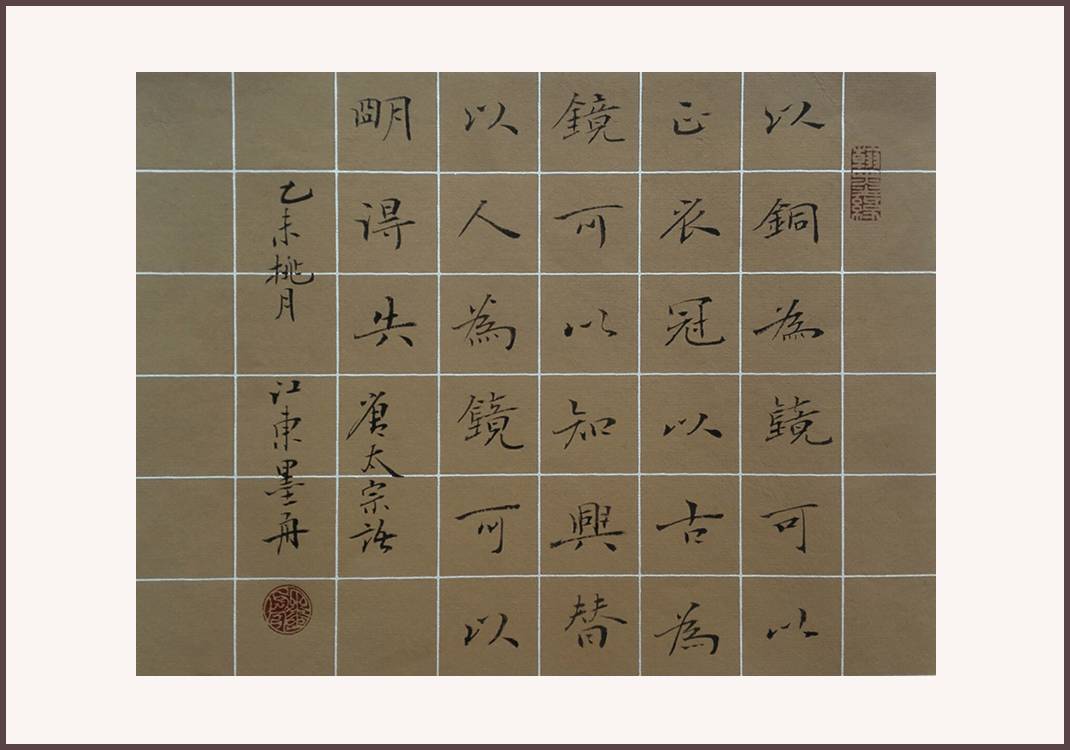 以銅為鏡可以
正衣冠以古為
鏡可以知興替
以人為鏡可以
明得失 唐太宗語
乙未桃月 江東墨舟
翰墨緣